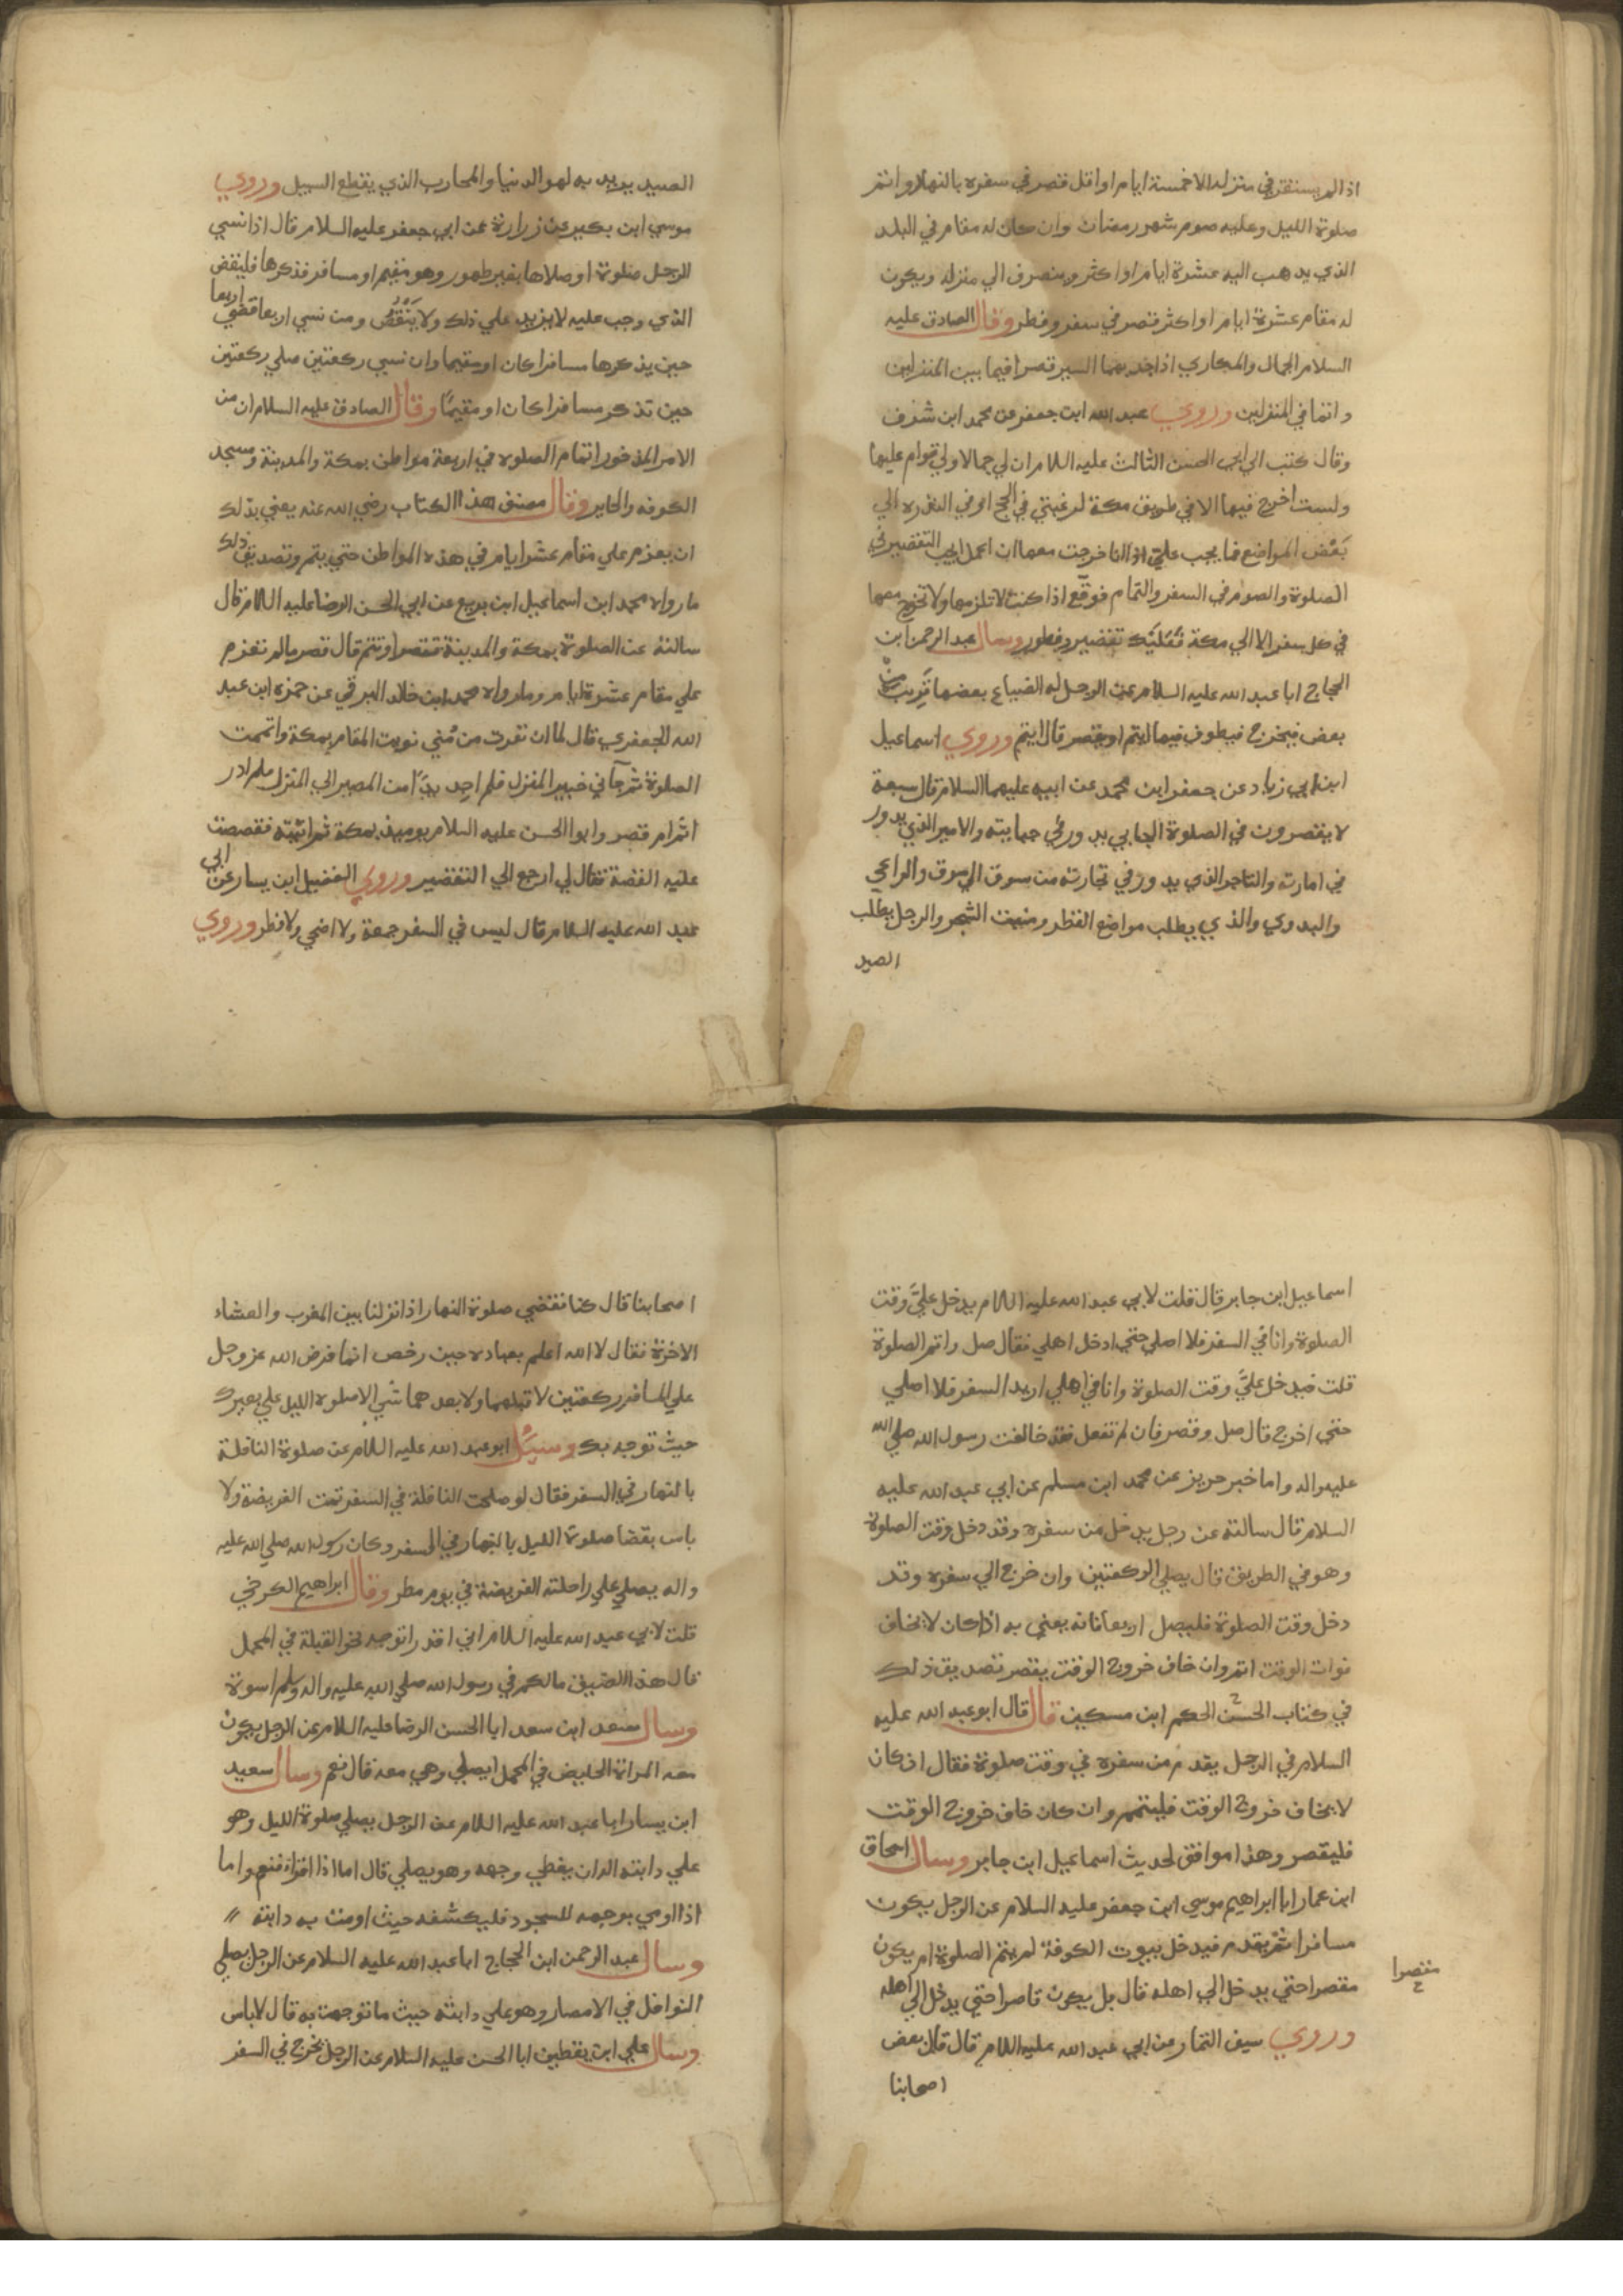 اذا لم يستقر في منزله الا خمسة ايام او اقل قصر في سفره بالنهار واتم
صلوة الليل وعليه صوم شهر رمضان وان كان له مقام في البلد
الذي يذهب اليه عشرة ايام او اكثر وينصرف الي منزله ويكون
له مقام عشرة ايام او اكثر قصر في سفر وفطر وقال الصادق عليه
السلام الجمال والمكاري اذا جد بهما السير قصرا فيما بين المنزلين
واتما في المنزلين وروي عبد الله ابن جعفر عن محمد ابن شرف
وقال كتبت الي ابي الحسن الثالث عليه السلام ان لي جمالا ولي قوام عليها
ولست اخرج فيها الا في طريق مكة لرغبتي في الحج او في الندرة الي
بَعْض المواضع فما يجب عليَّ اذا انا خرجت معها ان اعمل ايجب التقصير في
الصلوة والصوم في السفر والتمام فوقّع اذا كنت لا تلزمها ولا تخرج معها
في كل سفر الا الي مكة فعليك تقصير وفطور وسال عبد الرحمن ابن
الحجاج ابا عبد الله عليه السلام عن الرجل له الضياع بعضها قريب من
بعض فيخرج فيطوف فيها ايتم او يقصر قال ايتم وروي اسماعيل
ابن ابي زياد عن جعفر ابن محمد عن ابيه عليهما السلام قال سبعة
لا يقصرون في الصلوة الجابي يدور في جبايته والامير الذي يدور
في امارته والتاجر الذي يدور في تجارته من سوق الي سوق والراعي
والبدوي والذي يطلب مواضع القطر ومنبت الشجر والرجل يطلب
الصيد
الصيد يريد به لهو الدنيا والمحارب الذي يقطع السبيل وروي
موسي ابن بكير عن زرارة عن ابي جعفر عليه السلام قال اذا نسي
الرجل صلوة او صلاها بغير طهور وهو مقيم او مسافر فذكرها فليقض
الذي وجب عليه لا يزيد علي ذلك ولا يَنْقُصُ ومن نسي اربعا قضي اربعا
حين يذكرها مسافرا كان او مقيما وان نسي ركعتين صلي ركعتين
حين تذكر مسافرا كان او مقيمًا وقال الصادق عليه السلام ان من
الامر المذخور اتمام الصلوة في اربعة مواطن بمكة والمدينة ومسجد
الكوفه والحاير وقال مصنف هذا الكتاب رضي الله عنه يعني بذلك
ان يعزم علي مقام عشر ايام في هذه المواطن حتي يتم وتصديق ذلك
ما رواه محمد ابن اسماعيل ابن بزيع عن ابي الحسن الرضا عليه السلام قال
سالته عن الصلوة بمكة والمدينة تقصر او تتم قال قصر ما لم تعزم
علي مقام عشرة ايام وما رواه محمد ابن خالد البرقي عن حمزه ابن عبد
الله الجعفري قال لما ان نفرت من مُني نويت المقام بمكة واتممت
الصلوة ثم جآني خبر المنزل فلم اجد بدًّا من المصير الي المنزل فلم ادر
اتم ام قصر وابو الحسن عليه السلام يومئذ بمكة ثم اتيته فقصصت
عليه القصة فقال لي ارجع الي التقصير وروي الفضيل ابن يسار عن ابي
عبد الله عليه السلام قال ليس في السفر جمعة ولا اضحي ولا فطر وروي
اسماعيل ابن جابر قال قلت لابي عبد الله عليه السلام يدخل عليَّ وقت
الصلوة وانا في السفر فلا اصلي حتي ادخل اهلي فقال صل واتم الصلوة
قلت فيدخل عليَّ وقت الصلوة وانا في اهلي اريد السفر فلا اصلي
حتي اخرج قال صل وقصر فان لم تفعل فقد خالفت رسول الله صلي الله
عليه واله واما خبر حريز عن محمد ابن مسلم عن ابي عبد الله عليه
السلام قال سالته عن رجل يدخل من سفره وقد دخل وقت الصلوة
وهو في الطريق قال يصلي الركعتين وان خرج الي سفره وقد
دخل وقت الصلوة فليصل اربعا فانه يعني به اذا كان لا يخاف
فوات الوقت اتم وان خاف خروج الوقت يقصر تصديق ذلك
في كتاب الحسن الحكم ابن مسكين قال قال ابو عبد الله عليه
السلام في الرجل يقدم من سفره في وقت صلوة فقال اذ كان
لا يخاف خروج الوقت فليتمم وان كان خاف خروج الوقت
فليقصر وهذا موافق لحديث اسماعيل ابن جابر وسال اسحاق
ابن عمار ابا ابراهيم موسي ابن جعفر عليه السلام عن الرجل يكون
مسافرا ثم يقدم فيدخل بيوت الكوفة لم يتم الصلوة ام يكون
مقصرا حتي يدخل الي اهله قال بل يكون قاصرا حتي يدخل الي اهله
مقصرا
وروي سيف التمار عن ابي عبد الله عليه السلام قال قال بعض
اصحابنا
اصحابنا قال كنا نقضي صلوة النهار اذا نزلنا بين المغرب والعشاء
الاخرة فقال لا الله اعلم بعباده حين رخص انما فرض الله عز وجل
علي المسافر ركعتين لا قبلهما ولا بعدهما شي الا صلوة الليل علي بعيرك
حيث توجه بك وسئل ابو عبد الله عليه السلام عن صلوة النافلة
بالنهار في السفر فقال لو صلحت النافلة في السفر تمت الفريضة ولا
باس بقضا صلوة الليل بالنهار في السفر وكان رسول الله صلي الله عليه
واله يصلي علي راحلته الفريضة في يوم مطر وقال ابراهيم الكرخي
قلت لابي عبد الله عليه السلام اني اقدر اتوجه نحو القبلة في المحمل
قال هذا الضيق ما لكم في رسول الله صلي الله عليه واله وسلم اسوة
وسال سعد ابن سعد ابا الحسن الرضا عليه السلام عن الرجل يكون
معه المراة الحايض في المحمل ايصلي وهي معه قال نعم وسال سعيد
ابن يسار ابا عبد الله عليه السلام عن الرجل يصلي صلوة الليل وهو
علي دابته اله ان يغطي وجهه وهو يصلي قال اما اذا اقراء فنعم واما
اذا اومي بوجهه للسجود فليكشفه حيث اومت به دابته
وسال عبد الرحمن ابن الحجاج ابا عبد الله عليه السلام عن الرجل يصلي
النوافل في الامصار وهو علي دابته حيث ما توجهت به قال لا باس
وسال علي ابن يقطين ابا الحسن عليه السلام عن الرجل يخرج في السفر